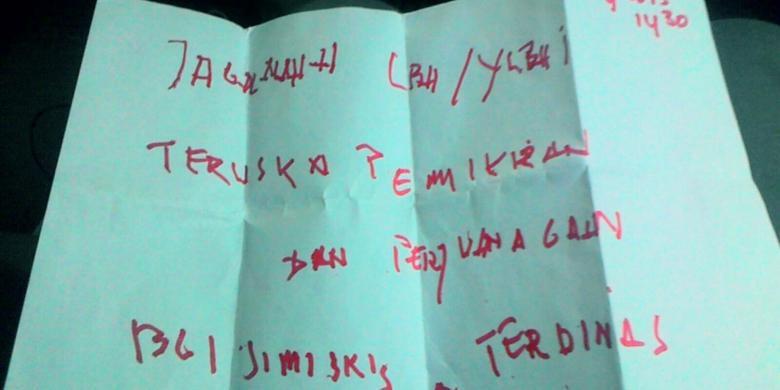 1430
JAGANAH LBH/YLBHI
TERUSKA PEMIKIRAN
DAN PERJUANAGAN
BGI SIMISKIS TERDINAS